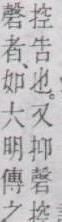 控告也。又抑磬控
磬者、如大明傳之